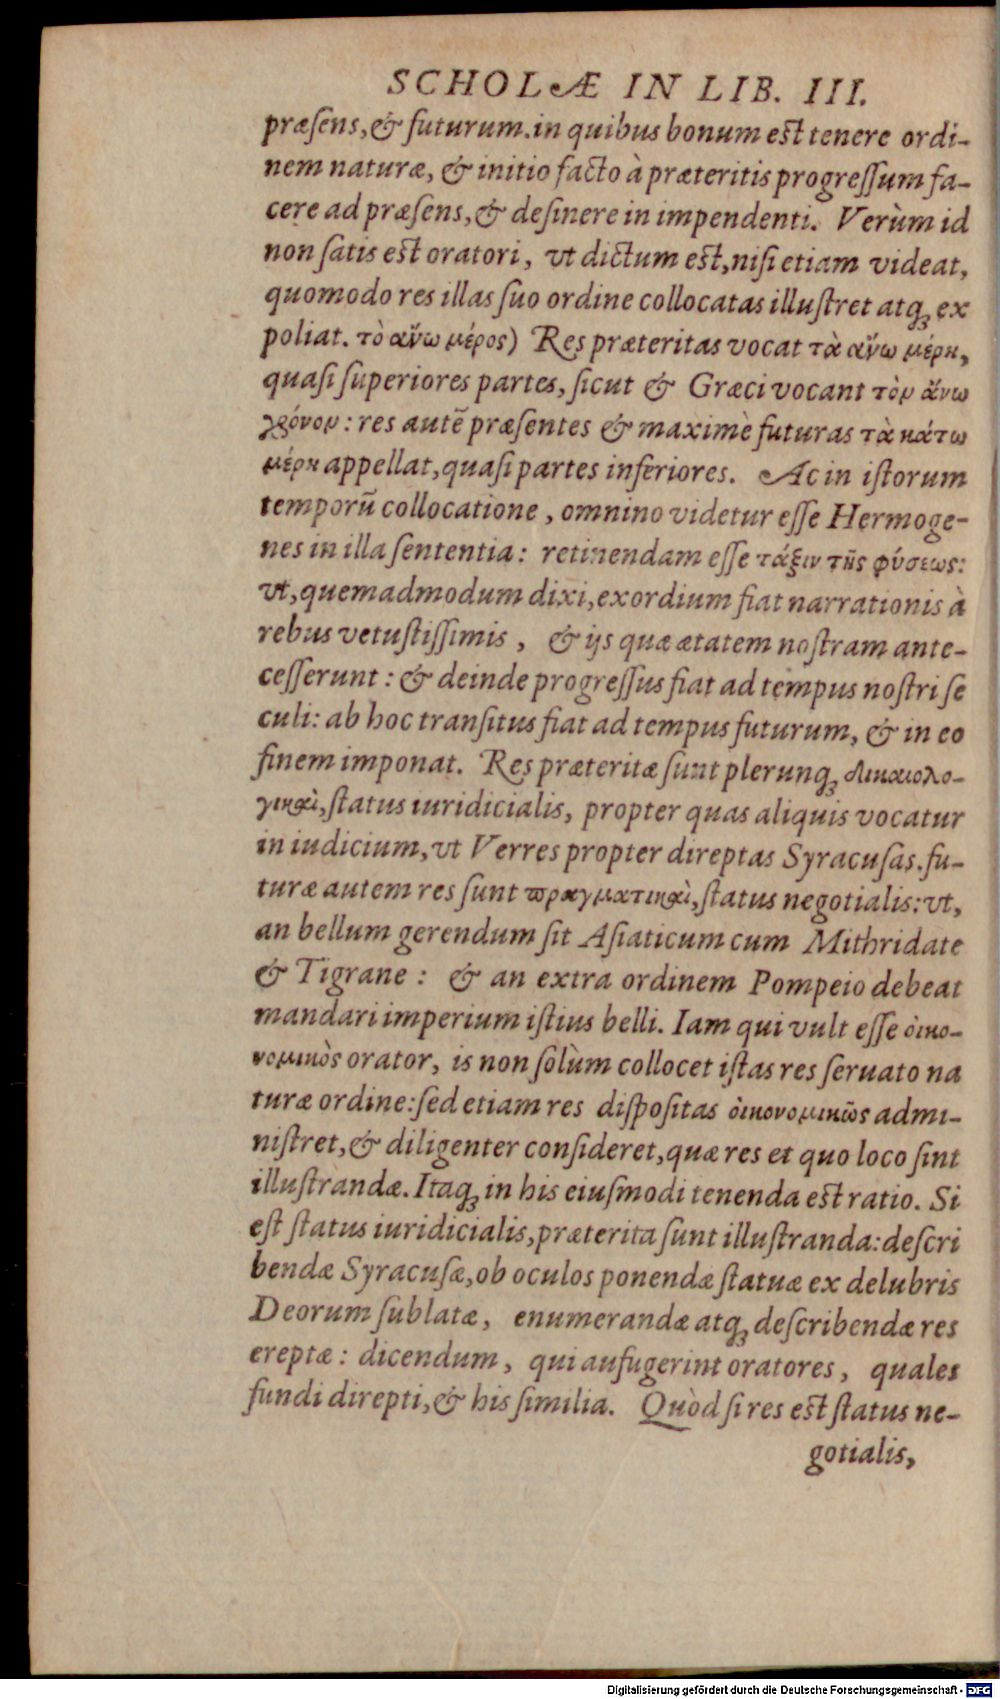 SCHOLÆ IN LIB. III.
præſens, & futurum. in quibus bonum est tenere ordi-
nem naturæ, & initio facto à præteritis progreſſum fa-
cere ad præſens, & deſinere in impendenti. Verùm id
non ſatis est oratori, vt dictum est, niſi etiam videat,
quomodo res illas ſuo ordine collocatas illuſtret atqꝫ ex
poliat. τὸ ἄνω μέρος) Res præteritas vocat τὰ ἄνω μέρη,
quaſi ſuperiores partes, ſicut & Græci vocant τὸν ἄνω
χρόνον: res autẽ præſentes & maximè futuras τὰ κάτω
μέρη appellat, quaſi partes inferiores. Ac in iſtorum
temporũ collocatione, omnino videtur eſſe Hermoge-
nes in illa ſententia: retinendam eſſe τάξιν τῆς φύσεως:
vt, quemadmodum dixi, exordium fiat narrationis à
rebus vetuſtiſſimis, & ijs quæ ætatem noſtram ante-
ceſſerunt: & deinde progreſſus fiat ad tempus noſtri ſe
culi: ab hoc tranſitus fiat ad tempus futurum, & in eo
finem imponat. Res præteritæ ſunt plerunqꝫ δικαιολο-
γικαὶ, ſtatus iuridicialis, propter quas aliquis vocatur
in iudicium, vt Verres propter direptas Syracuſas. fu-
turæ autem res ſunt πραγματικαὶ, ſtatus negotialis: vt,
an bellum gerendum ſit Aſiaticum cum Mithridate
& Tigrane: & an extra ordinem Pompeio debeat
mandari imperium iſtius belli. Iam qui vult eſſe ὀικο-
νομικὸς orator, is non ſolùm collocet iſtas res ſeruato na
turæ ordine: ſed etiam res diſpoſitas ὀικονομικῶς admi-
niſtret, & diligenter conſideret, quæ res et quo loco ſint
illuſtrandæ. Itaqꝫ in his eiuſmodi tenenda est ratio. Si
eſt ſtatus iuridicialis, præterita ſunt illuſtranda: deſcri
bendæ Syracuſæ, ob oculos ponendæ ſtatuæ ex delubris
Deorum ſublatæ, enumerandæ atqꝫ deſcribendæ res
ereptæ: dicendum, qui aufugerint oratores, quales
fundi direpti, & his ſimilia. Quòd ſi res est ſtatus ne-
gotialis,
Digitalisierung gefördert durch die Deutsche Forschungsgemeinschaft - DFG